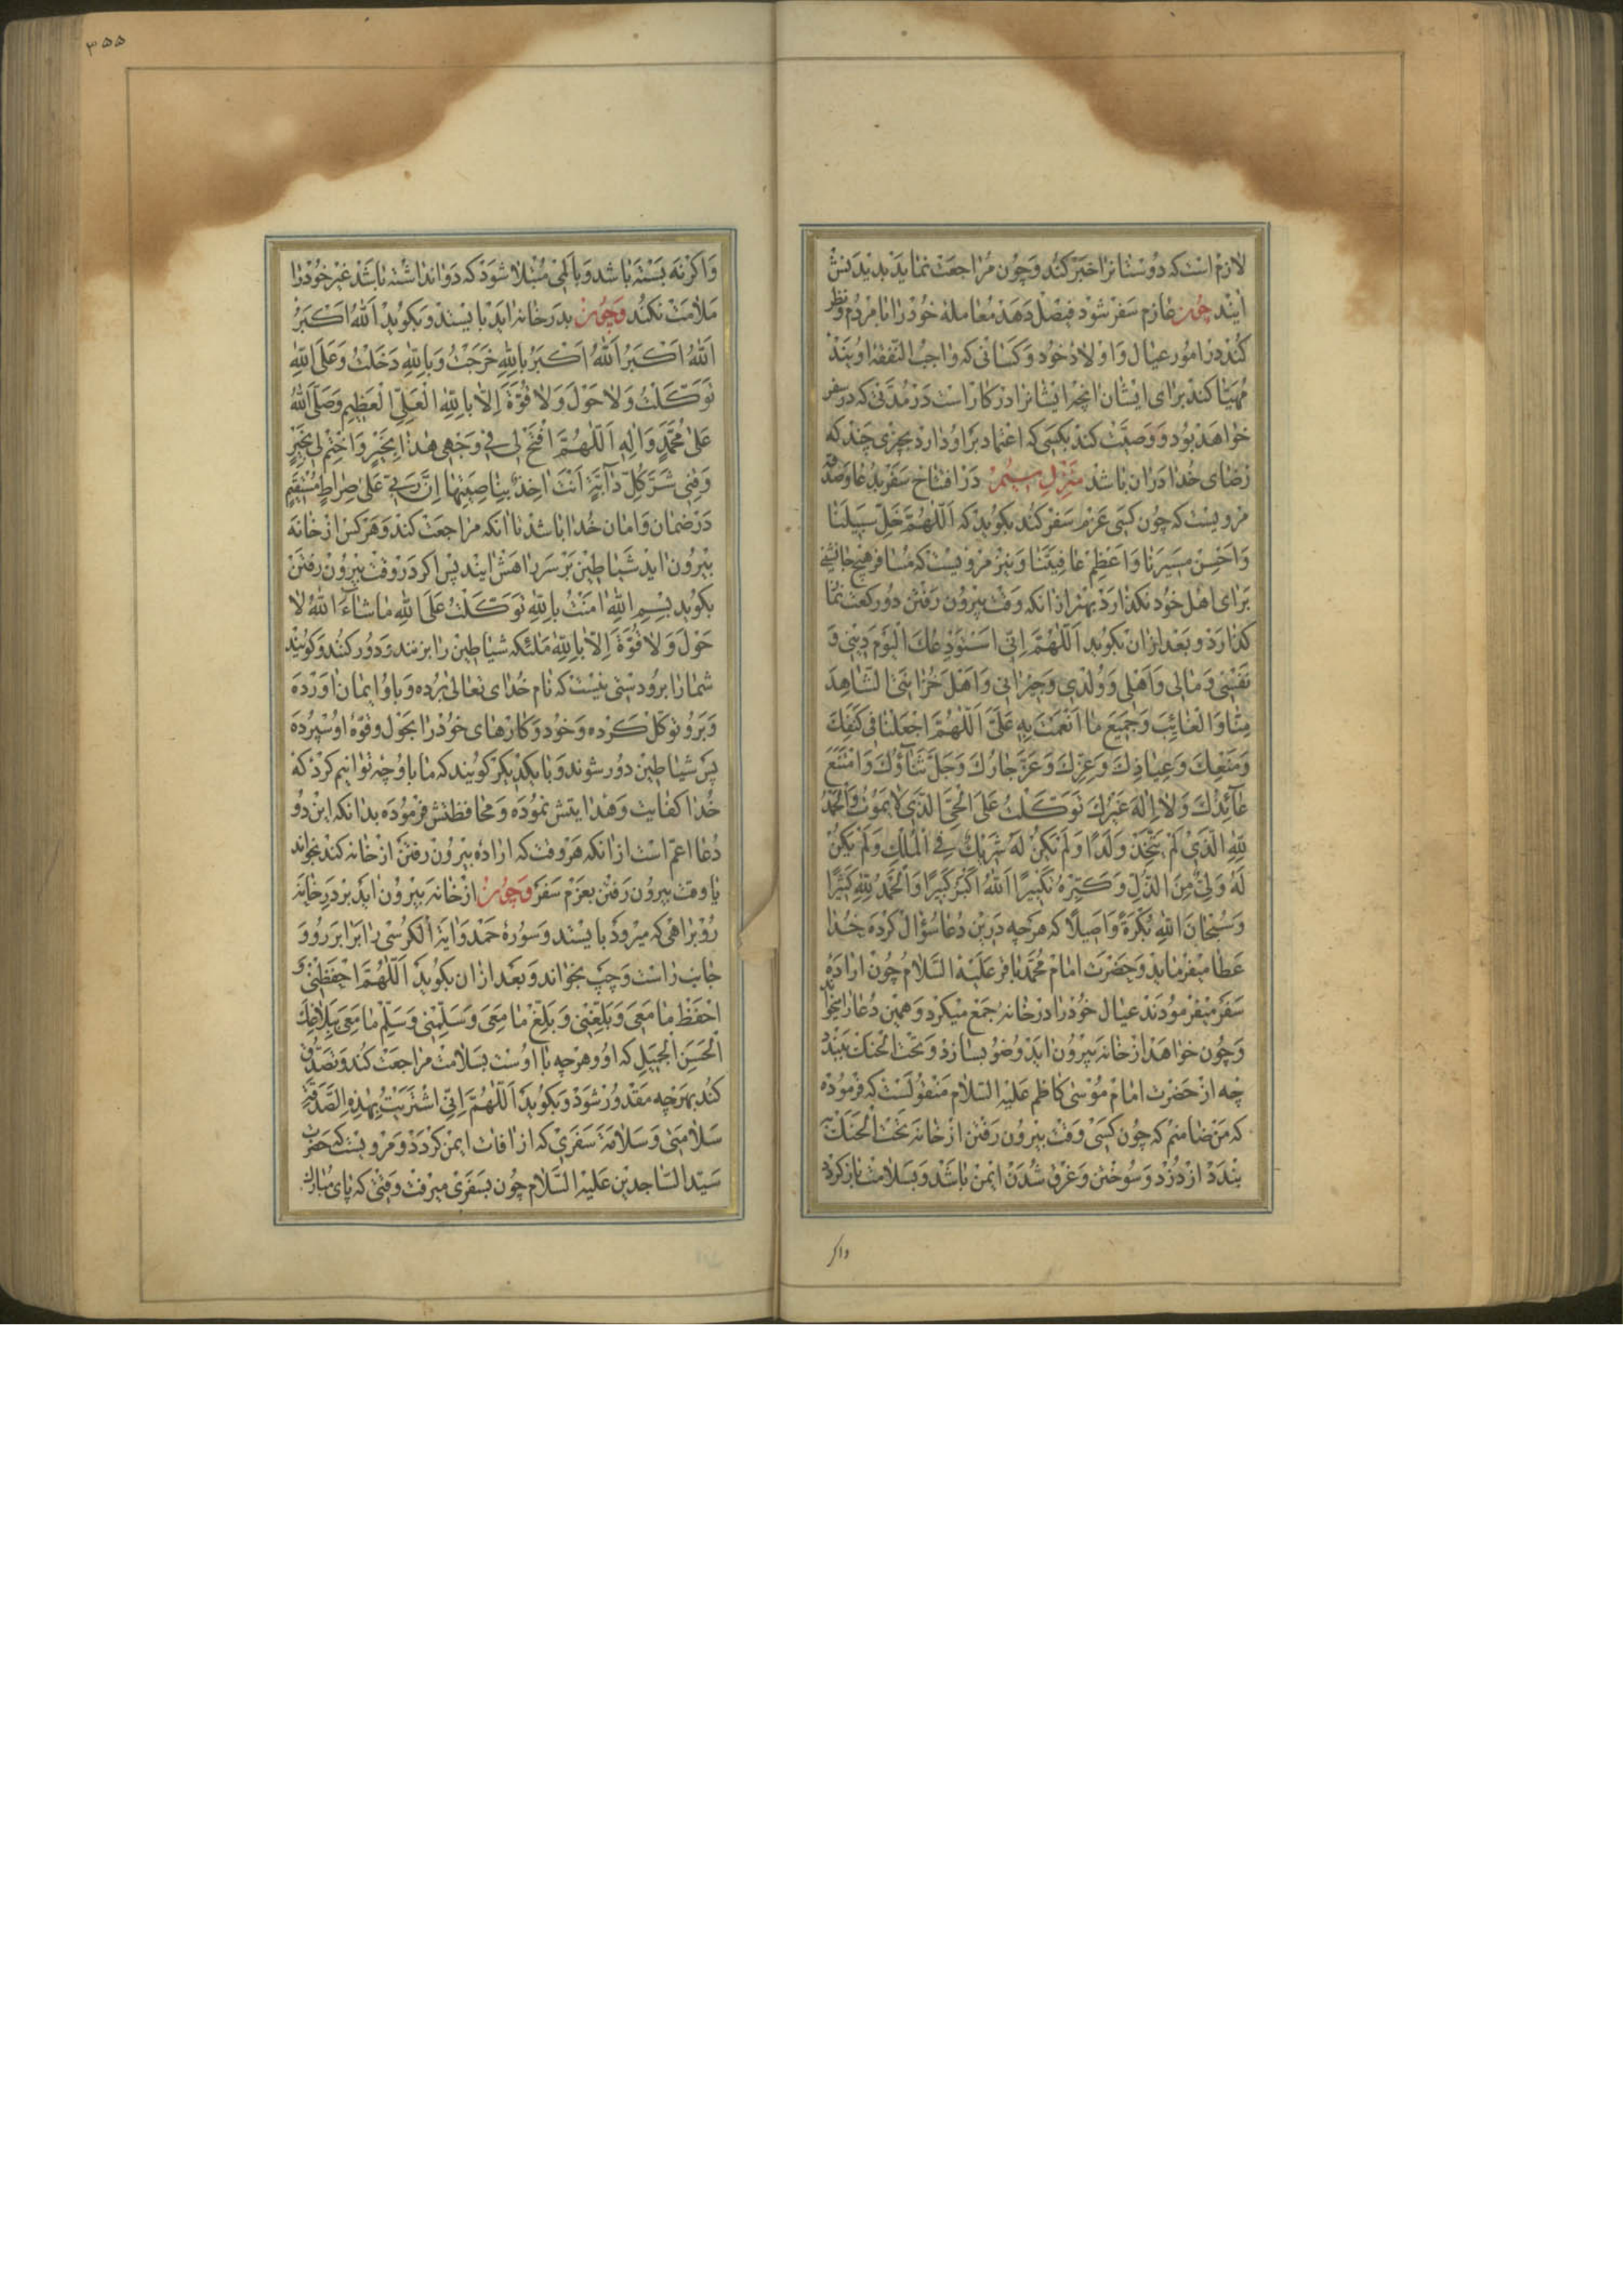 لازم است که دوستانرا خبر کند و چون مراجعت نماید بدیدنش
ایند چون عازم سفر شود فیصل دهد معامله خود را با مردم و نظر
کند در امور عیال و اولاد خود و کسانی که واجب النفقه اویند
مهیا کند برای ایشان انچه ایشانرا در کار است در مدتی که در سفر
خواهد بود و وصیت کند بکسی که اعتماد بر او دارد بچیزی چند که
رضای خدا در ان باشد منزل سیم در افتتاح سفر بدعا و صدقه
مرویست که چون کسی عزم سفر کند بکوید که اَللّهُمَّ خَلِّ سَبیلَنا
وَاَحْسِنْ مَسیرَنا وَاَعْظِمْ عافِیَتَنا و نیز مرویست که مسافر هیچ جانشینی
برای اهل خود نکذارد بهتر از انکه وقت بیرون رفتن دو رکعت نماز
کذارد و بعد از ان بکوید اَللّهُمَّ اِنّی اَسْتَوْدِعُكَ الْیَوْمَ دینی وَ
نَفْسی وَمالی وَاَهْلی وَوُلْدی وَجیرانی وَاَهْلَ حُزانَتی الشّاهِدَ
مِنّا وَالْغائِبَ وَجَمیعَ ما اَنْعَمْتَ بِهِ عَلَیَّ اَللّهُمَّ اجْعَلْنا فی كَنَفِكَ
وَمَنْعِكَ وَعِیاذِكَ وَعِزِّكَ وَعَزَّ جارُكَ وَجَلَّ ثَنآؤُكَ وَامْتَنَعَ
عآئِذُكَ وَلا اِلهَ غَیْرُكَ تَوَكَّلْتُ عَلَی الْحَیِّ الَّذی لا یَمُوتُ وَالْحَمْدُ
لِلّهِ الَّذی لَمْ یَتَّخِذْ وَلَدًا وَلَمْ یَكُنْ لَهُ شَریكٌ فِی الْمُلْكِ وَلَمْ یَكُنْ
لَهُ وَلِیٌّ مِنَ الذُّلِّ وَكَبِّرْهُ تَكْبیرًا اَللّهُ اَكْبَرُ كَبیرًا وَالْحَمْدُ لِلّهِ كَثیرًا
وَسُبْحانَ اللّهِ بُكْرَةً وَاَصیلًا که هرچه درین دعا سؤال کرده خدا
عطا میفرماید و حضرت امام محمد باقر علیه السلام چون اراده
سفر میفرمودند عیال خود را در خانه جمع میکرد و همین دعا را میخواند
و چون خواهد از خانه بیرون اید وضو بسازد و تحت الحنك ببندد
چه از حضرت امام موسی کاظم علیه السلام منقولست که فرموده
که من ضامنم که چون کسی وقت بیرون رفتن از خانه تحت الحنك
بندد از دزد و سوختن و غرق شدن ایمن باشد و بسلامت باز کردد
واکر
۳۵۵
واکر نه بسته باشد و بالمی مبتلا شود که دوا نداشته باشد غیر خود را
ملامت نکند و چون بدر خانه اید بایستد و بکوید اَللّهُ اَكْبَرُ
اَللّهُ اَكْبَرُ اَللّهُ اَكْبَرُ بِاللّهِ خَرَجْتُ وَبِاللّهِ دَخَلْتُ وَعَلَی اللّهِ
تَوَكَّلْتُ وَلا حَوْلَ وَلا قُوَّةَ اِلّا بِاللّهِ الْعَلِیِّ الْعَظیمِ وَصَلَّی اللّهُ
عَلی مُحَمَّدٍ وَالِهِ اَللّهُمَّ افْتَحْ لی فی وَجْهی هذا بِخَیْرٍ وَاخْتِمْ لی بِخَیْرٍ
وَقِنی شَرَّ كُلِّ دآبَّةٍ اَنْتَ اخِذٌ بِناصِیَتِها اِنَّ رَبّی عَلی صِراطٍ مُسْتَقیمٍ
در ضمان و امان خدا باشد تا انکه مراجعت کند و هر کس از خانه
بیرون اید شیاطین بر سر راهش ایند پس اکر در وقت بیرون رفتن
بکوید بِسْمِ اللّهِ امَنْتُ بِاللّهِ تَوَكَّلْتُ عَلَی اللّهِ ما شآءَ اللّهُ لا
حَوْلَ وَلا قُوَّةَ اِلّا بِاللّهِ ملئکه شیاطین را برنند و دور کنند و کویند
شما را برو دستی نیست که نام خدای تعالی برده و باو ایمان اورده
و برو توکل کرده و خود و کارهای خود را بحول و قوه او سپرده
پس شیاطین دور شوند و با یکدیکر کویند که ما باو چه توانیم کرد که
خدا کفایت و هدایتش نموده و محافظتش فرموده بدانکه این دو
دعا اعم است از انکه هر وقت که اراده بیرون رفتن از خانه کند بخواند
یا وقت بیرون رفتن بعزم سفر و چون از خانه بیرون اید بر در خانه
رو براهی که میرود بایستد و سوره حمد و ایة الکرسی را برابر رو و
جانب راست و چپ بخواند و بعد از ان بکوید اَللّهُمَّ احْفَظْنی وَ
احْفَظْ ما مَعِیَ وَبَلِّغْنی وَبَلِّغْ ما مَعِیَ وَسَلِّمْنی وَسَلِّمْ ما مَعِیَ بِبَلاغِكَ
الْحَسَنِ الْجَمیلِ که او و هر چه با اوست بسلامت مراجعت کند و تصدق
کند بهر چه مقدور شود و بکوید اَللّهُمَّ اِنّی اشْتَرَیْتُ بِهذِهِ الصَّدَقَةِ
سَلامَتی وَسَلامَةَ سَفَری که از افات ایمن کردد و مرویست که حضرت
سید الساجدین علیه السلام چون بسفری میرفت وقتی که پای مبارك